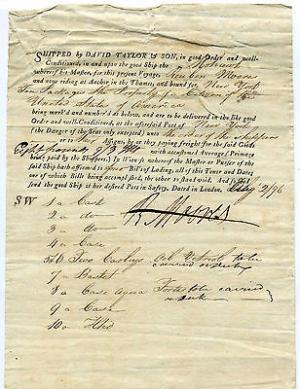 SHIPPED by DAVID TAYLOR & SON, in good Order and well-
Conditioned, in and upon the good Ship the Mohawk
whereof is Master, for this present Voyage, Reuben Moore
and now riding at Anchor in the Thames, and bound for New York
Ten Packages the Property of a Citizen of the
United States of America
being mark'd and number'd as below, and are to be delivered in the like good
Order and well-Conditioned, at the aforesaid Port of New York
(the Danger of the Seas only excepted) unto the order of the Shippers
or Assigns, he or they paying Freight for the said Goods
with Primage and Average
being paid by the Shippers.) In Witness whereof the Master or Purser of the
said Ship hath affirmed to four Bills of Lading, all of this Tenor and Date;
one of which Bills being accomplished, the other to stand void. And so God
send the good Ship to her desired Port in Safety. Dated in London, 96
SW 1 a Cask
2 a do
3 a do
4 a Case
5 & 6 Two Oil Vitriol to be
carried on deck
7 a Casket
8 a Case Aqua Fortis to be carried
on deck
9 a Case
10 a Hhd
R Moore